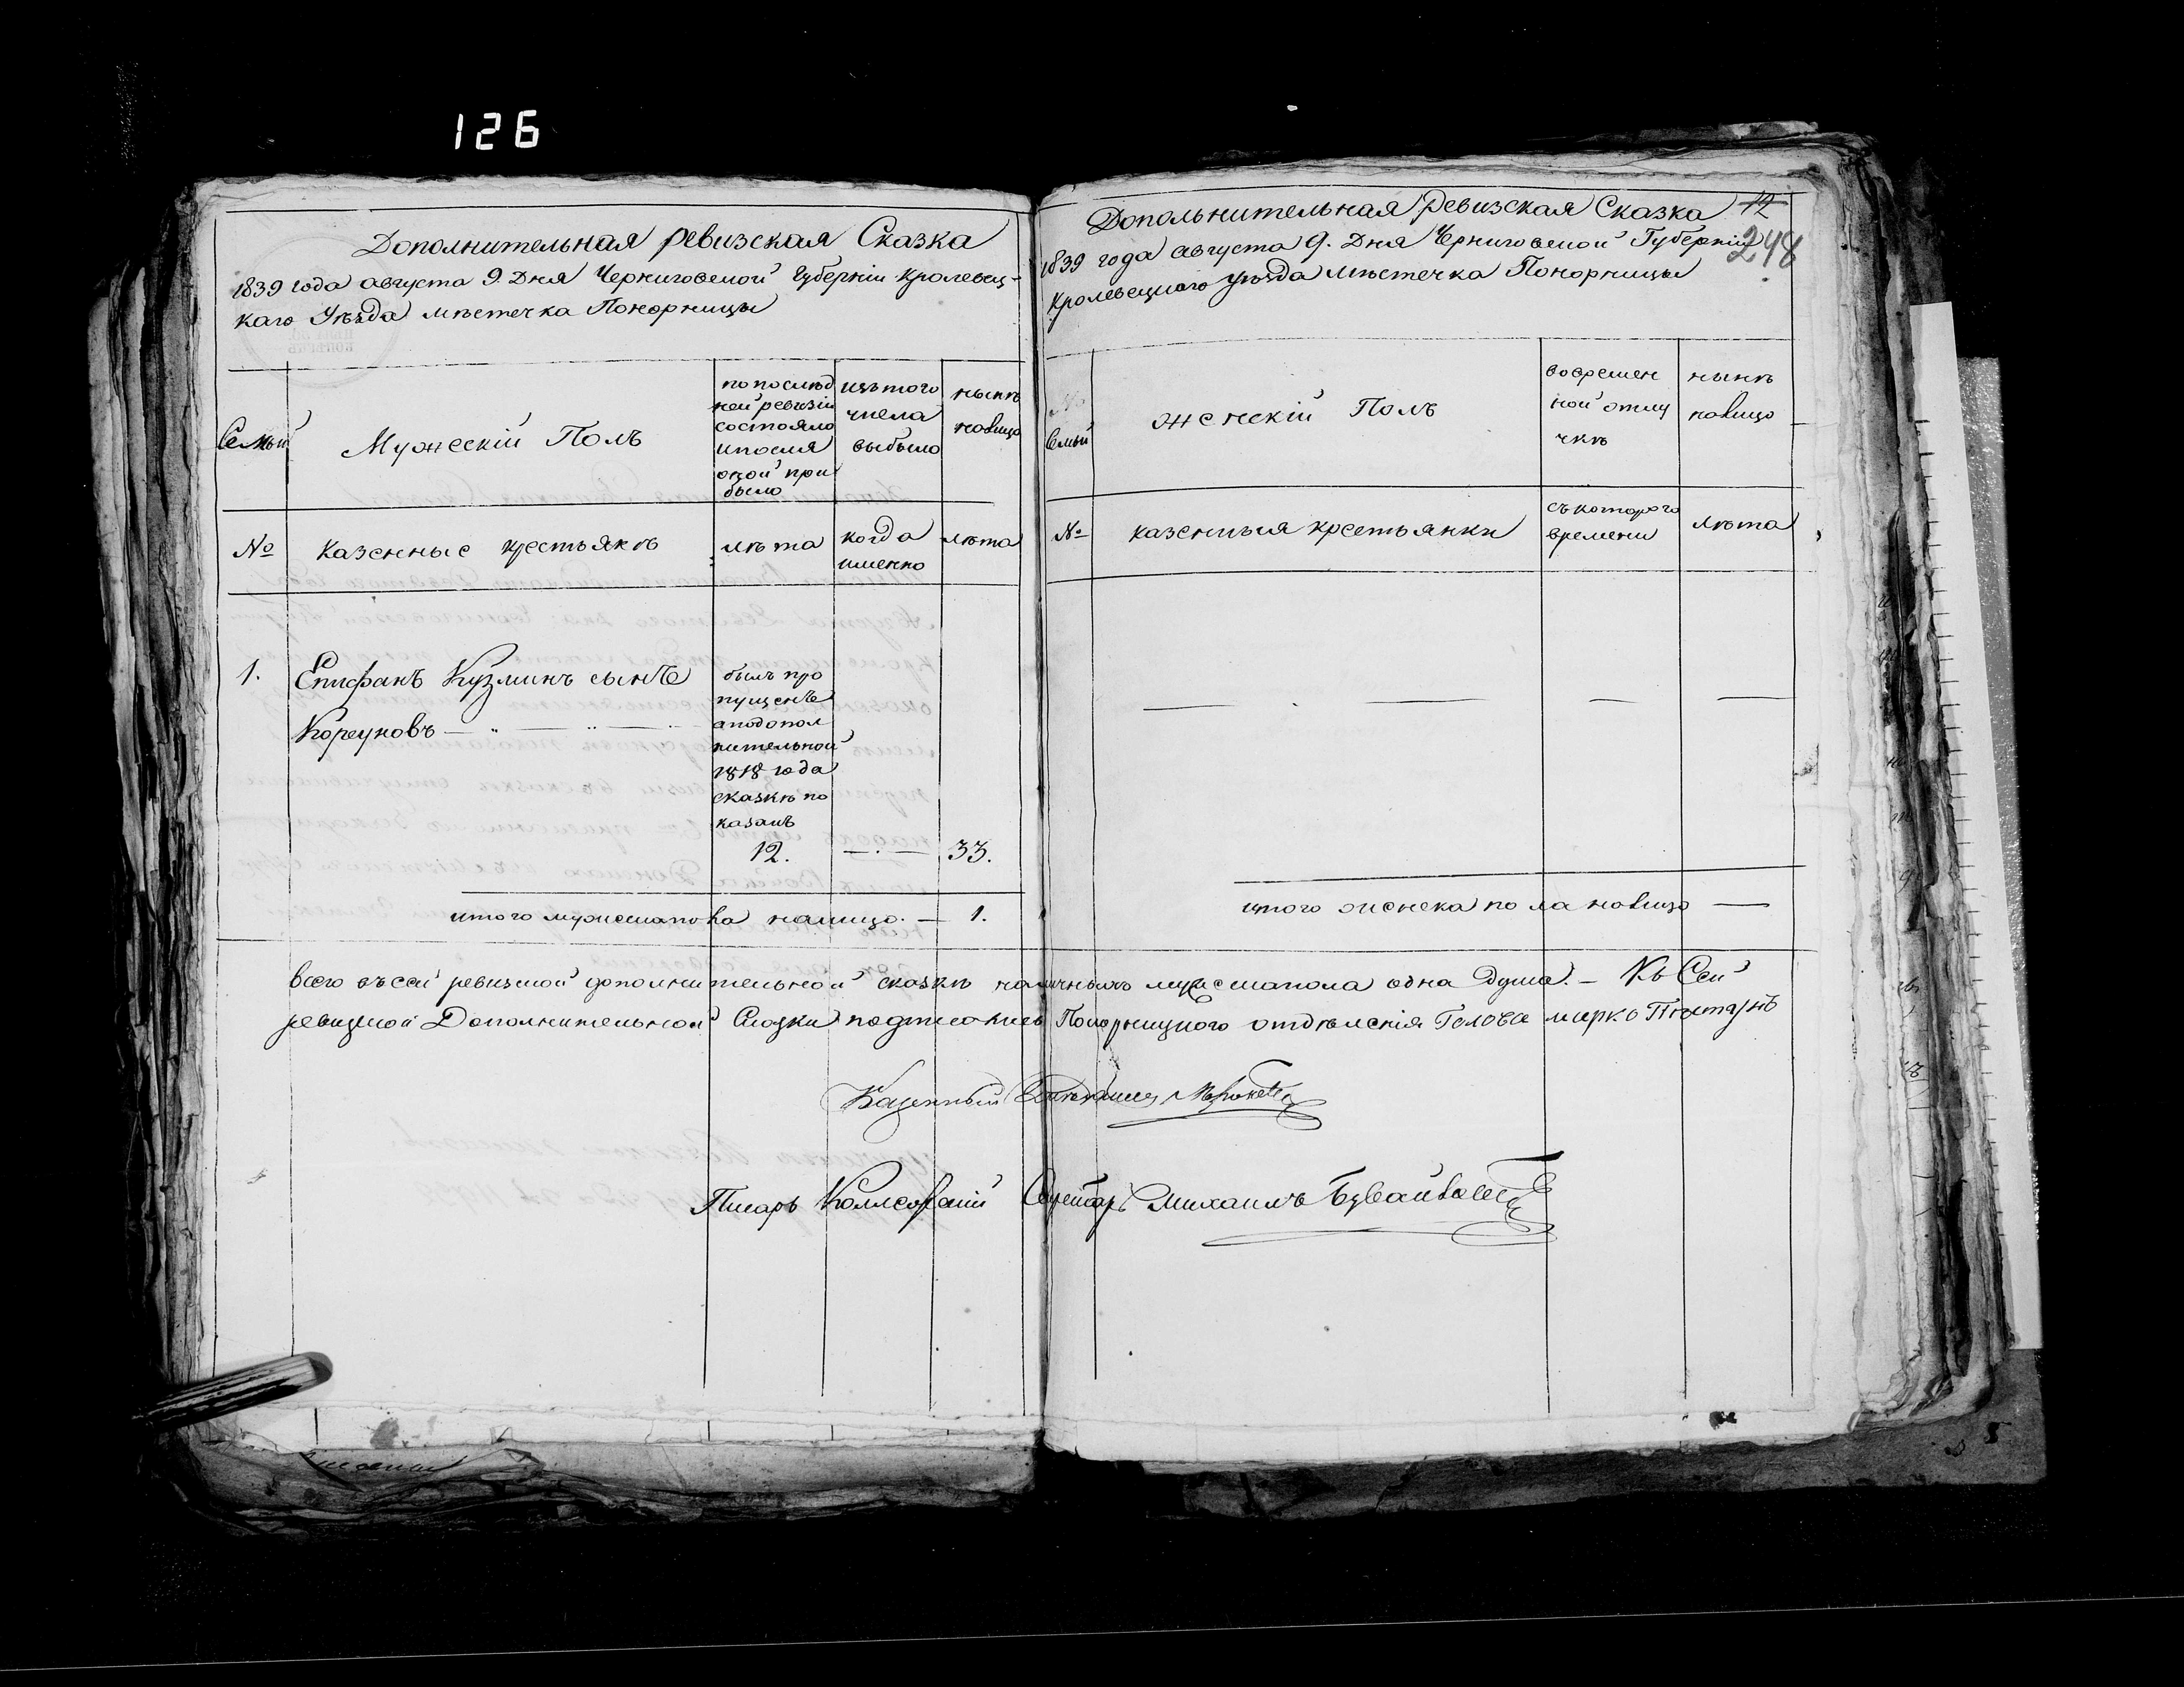 126
Дополнительная ревизская Сказка
1839 года августа 9. Дня Черниговской Губерніи Кролевец-
каго Уѣзда мѣстечка Понорницы
Семьи
Мужескій Полъ
по послѣд
ней ревизіи
состояло
и посля
оной при
было
изъ того
числа
выбыло
нынѣ
налицо
№
Казенные крестьянѣ
лѣта
когда
именно
лѣта
1.
Епифанъ Кузминъ сынъ
Корсуновъ
былъ про
пущенъ
а по допол
нительной
1818 года
сказкѣ по
казанъ
12.
33.
итого мужеска пола налицо. — 1.
Дополнительная Ревизская Сказка
12
248
1839 года августа 9. Дня Черниговской Губерніи
Кролевецкого уѣзда мѣстечка Понорницы
№
Семьи
женскій Полъ
во времен
ной отлу
чкѣ
нынѣ
налицо
№
казенныя крестьянки
съ которого
времени
лѣта
итого женска пола налицо —
всего въ сей ревизской дополнительной сказкѣ наличныхъ мужеска пола одна душа. — Къ Сей
ревизской Дополнительной Сказки подписались Понорницкого отдѣленія Голова марко
Казенный
Писарь Коллежскій Секретарь Михаилъ